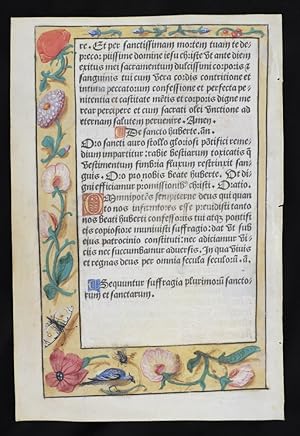 re. Et per sanctissimam mortem tuam te de
precor piissime domine iesu christe vt ante diem
exitus mei sacramentum dulcissimi corporis a
sanguinis tui cum vera cordis contritione et
intima peccatorum confessione et perfecta pe
nitentia et castitate mētis et corporis digne me
rear percipere et cum sacrati olei vnctione ad
eternam salutem peruenire. Amen.
De sancto huberte. añ.
Oro sancti auro stollo gloriose pōtifici remē
dium impartitur: rabie bestiarum toxicatis q̄
vestimentum fimbria fluxum restrinxit sangui
nis: Ora pro nobis beate huberte. Vt di
gni efficiamur promissionib⁹ christi. Oratio.
Omnipotēs sempiterne deus qui quan
to nos infantiores esse preuidisti tanto
nos beati huberti confessoris tui atq₃ pontifi
cis copiosiore muniuisti suffragio: dat vt sub
eius patrocinio constituti: nec adiciamur vi
ciis nec succumbamur aduersis. In qua viuis
et regnas deus per omnia secula seculorū. a.
Sequuntur suffragia plurimorū sancto
rum et sanctarum.